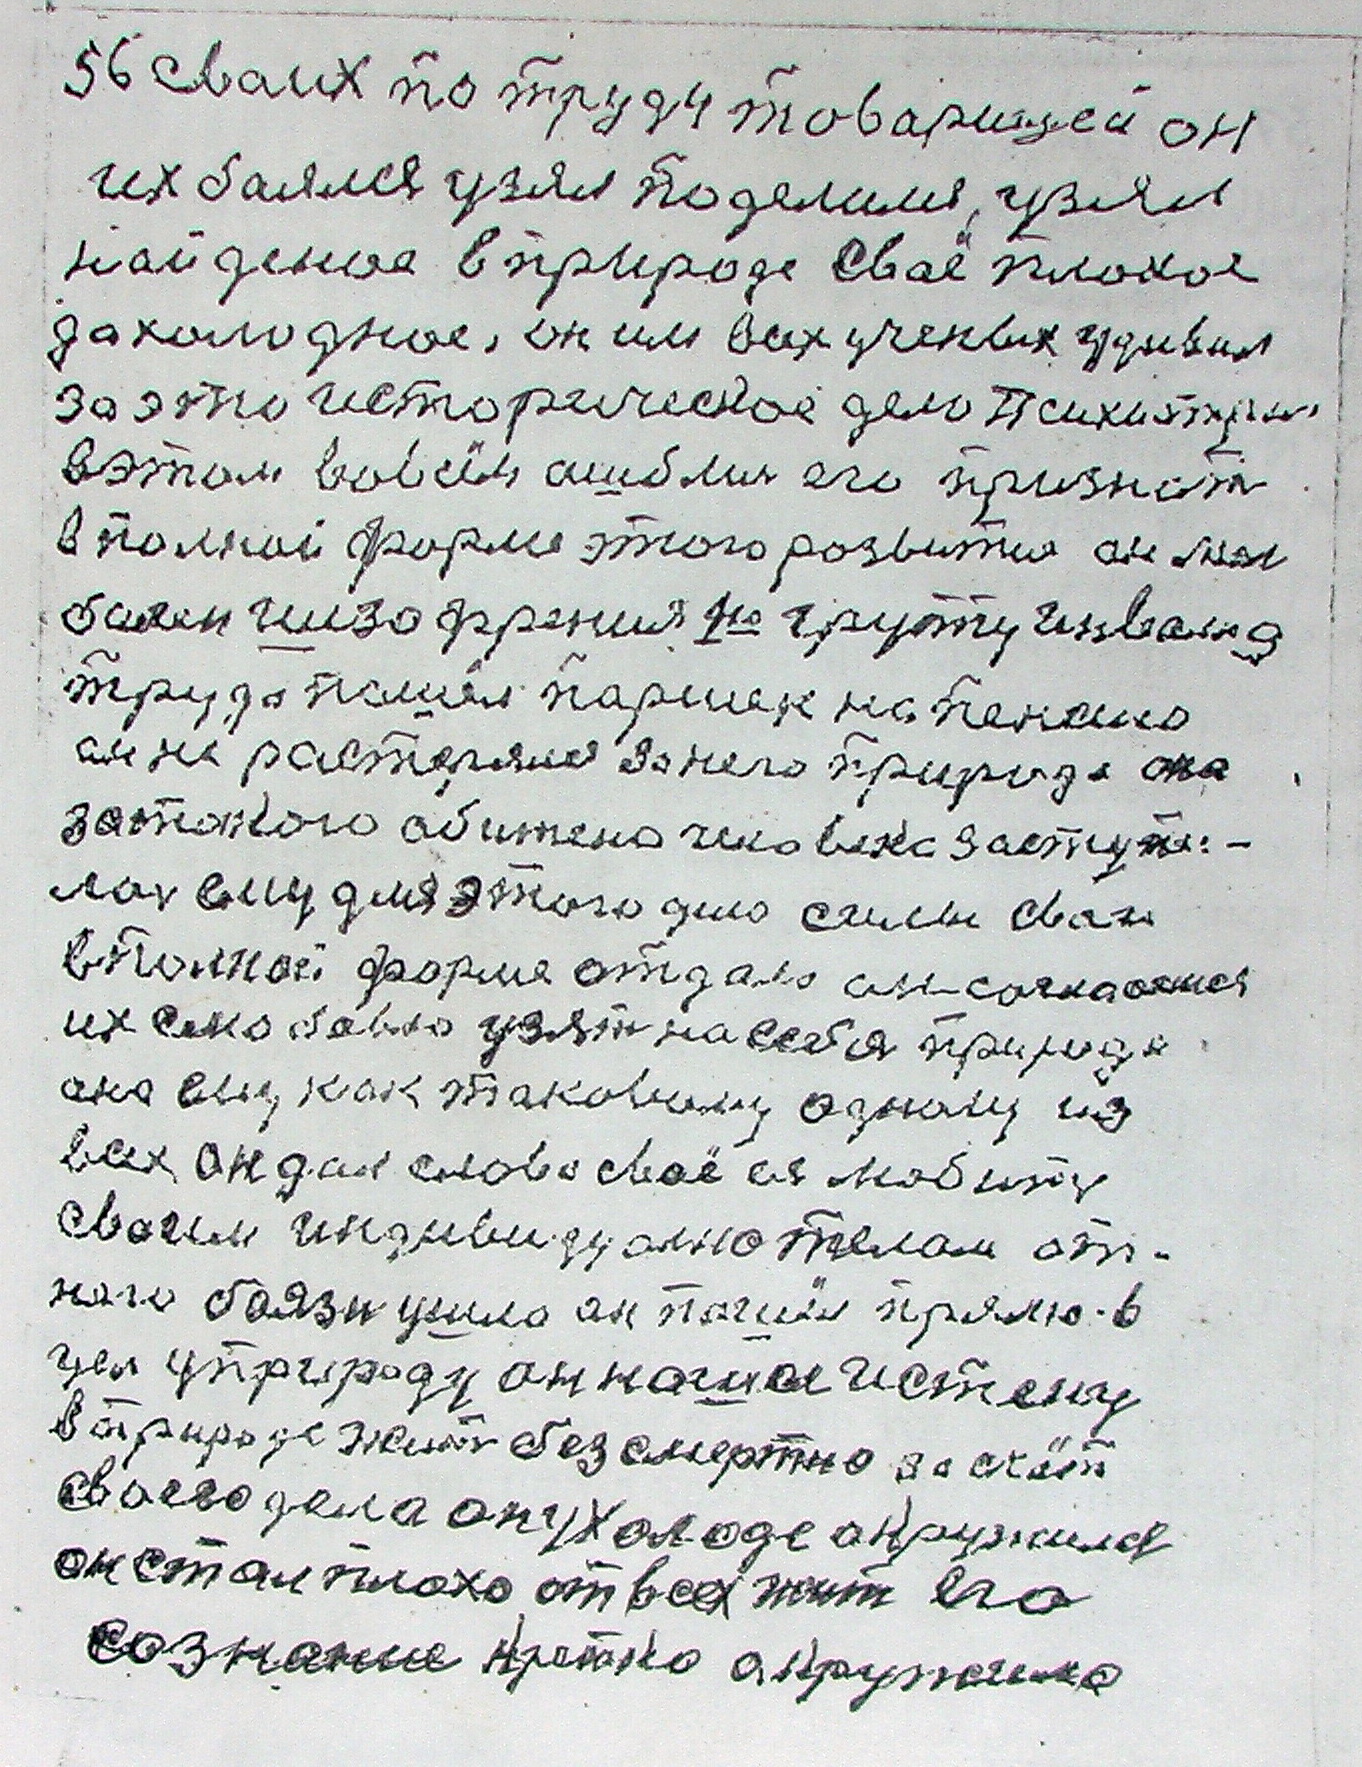 56 сваих по труду товарищей он
их баялся узял поделился, узял
найденае в природе сваё плохое
да холоднае, он им всех ученых удивил
за это историческае дело Психиатры
в этом вовсём ашиблис его признат
в полной форме этого розвития он был
болен шизофрения по групу инвалид
труда пашёл паршек на пенсию
он не растерялся за него природа она
за такого обижено человека заступи-
лас ему для этого дело силы сваи
в полной форме отдала он согласился
их смо узят на себя природа
она ему как таковому одному из
всех он дал слово сваё ея любит
своим индивидуално телам от-
него боязн ушла он пашёл прямо в
цел у природу он нашол истену
в природе жит безсмертно за счёт
сваего дела он у холоде окружился
он стал плохо от всех жит его
сознание крепко окружило